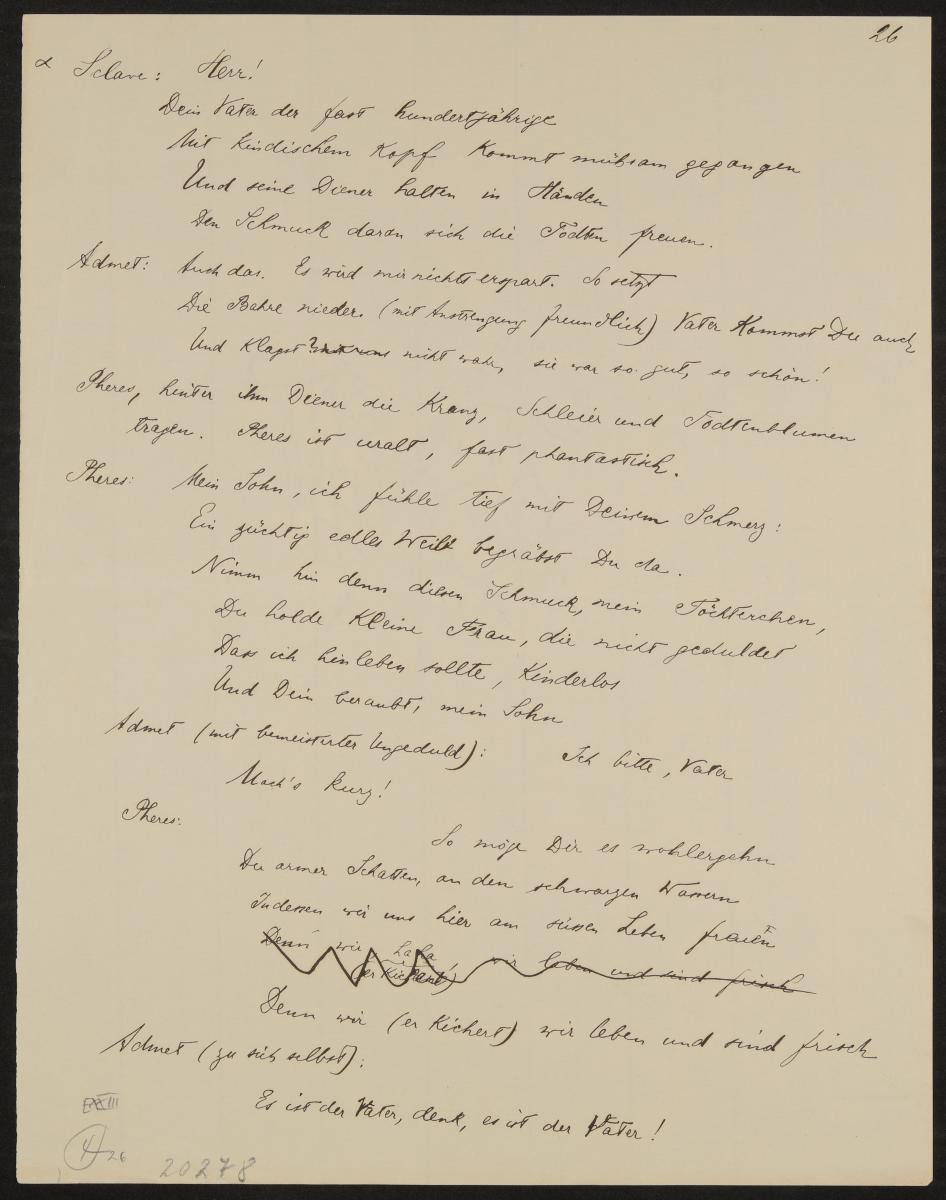 26
α Sclave: Herr!
Dein Vater der fast hundertjährige
Mit kindischem Kopf kommt mühsam gegangen
Und seine Diener halten in Händen
Den Schmuck daran sich die Todten freuen.
Admet: Auch das. Es wird mir nichts erspart. So setzt
Die Bahre nieder. (mit Anstrengung freundlich) Vater kommst Du auch
Und klagst? mit uns nicht wahr, sie war so gut, so schön!
Pheres, hinter ihm Diener die Kranz, Schleier und Todtenblumen
tragen. Pheres ist uralt, fast phantastisch.
Pheres: Mein Sohn, ich fühle tief mit Deinem Schmerz:
Ein züchtig edles Weib begräbst Du da.
Nimm hin denn diesen Schmuck, mein Töchterchen,
Du holde kleine Frau, die nicht geduldet
Dass ich hinleben sollte, kinderlos
Und Dein beraubt, mein Sohn
Admet (mit bemeisterter Ungeduld): Ich bitte, Vater
Mach's kurz!
Pheres: So möge Dir es wohlergehn
Du armer Schatten, an den schwarzen Wassern
Indessen wir uns hier am süssen Leben freuen
Denn wir (er kichert) wir leben und sind frisch
Denn wir (er kichert) wir leben und sind frisch
Admet (zu sich selbst):
Es ist der Vater, denk, es ist der Vater!
26
20278